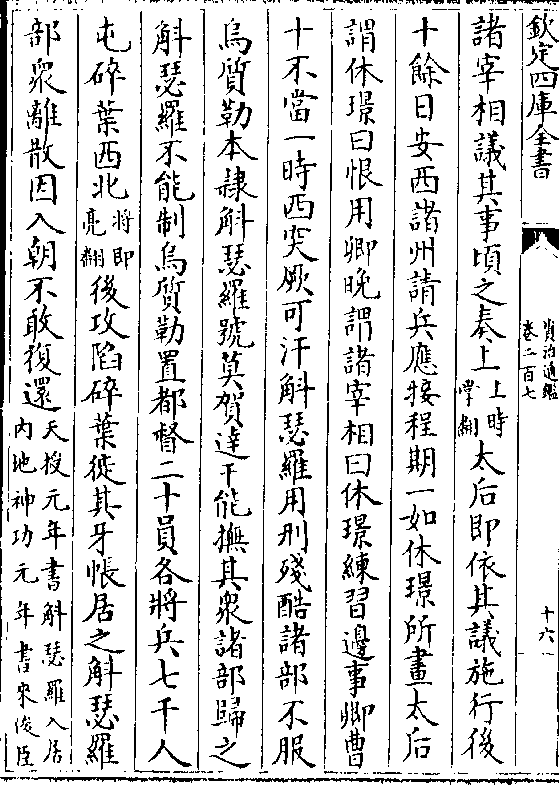 欽定四庫全書
資治通鑑
卷二百七
十六
諸宰相議其事頃之奏上上時掌翻太后即依其議施行後
十餘日安西諸州請兵應接程期一如休璟所畫太后
謂休璟曰恨用卿晚謂諸宰相曰休璟練習邊事卿曹
十不當一時西突厥可汗斛瑟羅用刑殘酷諸部不服
烏質勒本隸斛瑟羅號莫賀達干能撫其衆諸部歸之
斛瑟羅不能制烏質勒置都督二十員各將兵七千人
屯碎葉西北將即亮翻後攻陷碎葉徙其牙帳居之斛瑟羅
部衆離散因入朝不敢復還天授元年書斛瑟羅入居內地神功元年書來俊臣